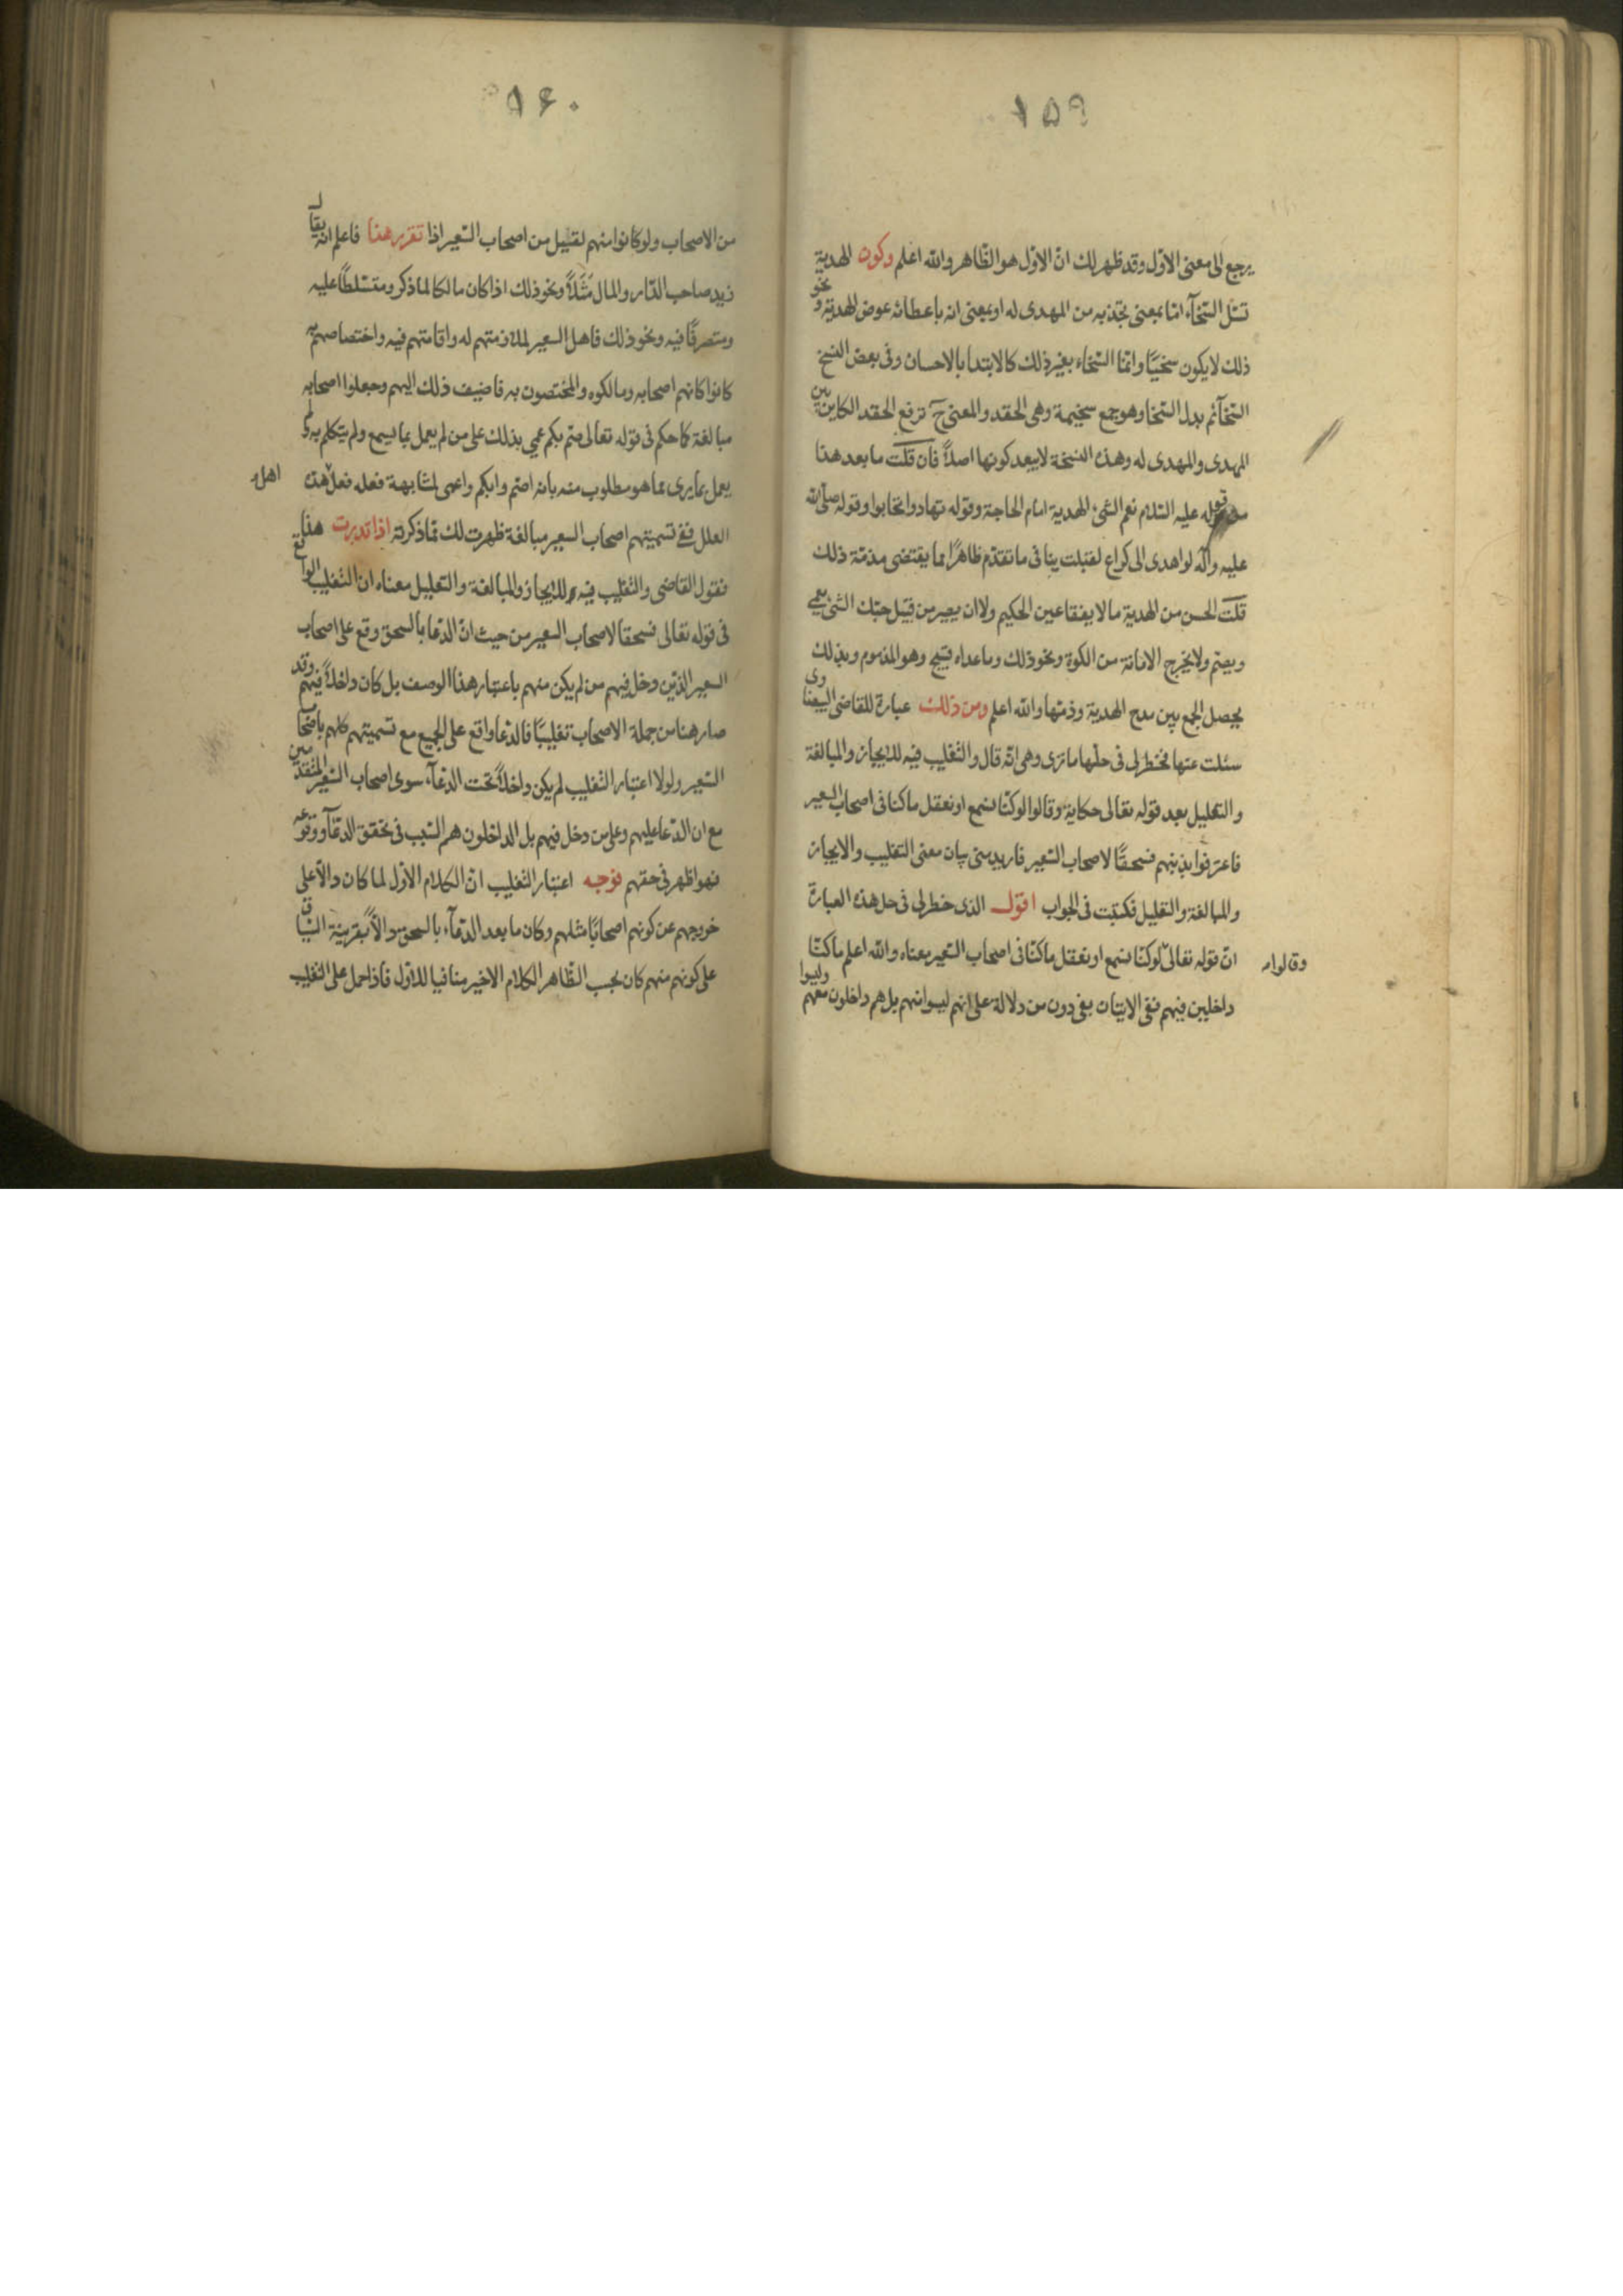 ١٥٩
يرجع الى معنى الاوّل وقد ظهر لك انّ الاوّل هو الظّاهر والله اعلم وكون الهديّة
تسلّ السّخآء امّا بمعنى تجذبه من المهدى له او بمعنى انه باعطائه عوض الهديّة ونحو
ذلك لا يكون سخيّا وانّما السّخاء بغير ذلك كالابتدا بالاحسان وفى بعض النسخ
السّخآئم بدل السّخا وهو جمع سخيمة وهى الحقد والمعنى ح ترفع الحقد الكاين بين
المهدى والمهدى له وهذه النسخة لا يبعد كونها اصلاً فان قلت ما بعد هذا
قوله عليه السّلام نعم الشّئ الهدية امام الحاجة وقوله تهادوا تحابوا وقوله صلى الله
عليه وآله لو اهدى الى كراع لقبلت ينافى ما تقدّم ظاهرًا مما يقتضى مذمّة ذلك
قلت الحسن من الهدية ما لا يفقا عين الحكيم ولا ان يصير من قبيل حبّك الشّئ يعمى
ويصم ولا يخرج الامانة من الكوة ونحو ذلك وما عداه قبيح وهو المذموم وبذلك
يحصل الجمع بين مدح الهدية وذمّها والله اعلم ومن ذلك عبارة للقاضى البيضاوى
سئلت عنها فخطر لى فى حلّها ما ترى وهى انّه قال والتّغليب فيه للايجاز والمبالغة
والتعليل بعد قوله تعالى حكاية وقالوا لو كنّا نسمع او نعقل ما كنا فى اصحاب السعير
فاعترفوا بذنبهم فسحقًا لاصحاب السّعير فاريد منى بيان معنى التغليب والايجاز
والمبالغة والتعليل فكتبت فى الجواب اقول الذى خطر لى فى حل هذه العبارة
انّ قوله تعالى لو كنّا نسمع او نعقل ما كنّا فى اصحاب السّعير معناه والله اعلم ما كنّا
وقالوا
داخلين فيهم فنفى الاتيان بفى دون من دلالة على انهم ليسوا منهم بل هم داخلون معهم وليسوا
١٦٠
من الاصحاب ولو كانوا منهم لقيل من اصحاب السّعير اذا تقرر هذا فاعلم انه يقال
زيد صاحب الدّار والمال مثلاً ونحو ذلك اذا كان مالكا لما ذكر ومتسلّطًا عليه
ومتصرفًا فيه ونحو ذلك فاهل السعير لملازمتهم له واقامتهم فيه واختصاصهم به
كانوا كانهم اصحابه ومالكوه والمختصون به فاضيف ذلك اليهم وجعلوا اصحابه
مبالغة كما حكم فى قوله تعالى صمّ بكم عمي بذلك على من لم يعمل بما يسمع ولم يتكلم به ولم
يعمل بما يرى مما هو مطلوب منه بانه اصمّ وابكم واعمى لمشابهة فعله فعل هذه
اهل
العلل ففى تسميتهم اصحاب السعير مبالغة ظهرت لك ممّا ذكرته اذا تدبرت هذا
فقول القاضى والتّغليب فيه للايجاز والمبالغة والتعليل معناه ان التّغليب الواقع
فى قوله تعالى فسحقا لاصحاب السعير من حيث انّ الدّعا بالسحق وقع على اصحاب
السعير الذين دخل فيهم من لم يكن منهم باعتبار هذا الوصف بل كان داخلاً فيهم وقد
صار هنا من جملة الاصحاب تغليبًا فالدّعا واقع على الجميع مع تسميتهم كلهم باصحاب
السّعير ولولا اعتبار التّغليب لم يكن داخلاً تحت الدعآء سوى اصحاب السّعير المتقدمين
مع ان الدّعا عليهم وعلى من دخل فيهم بل الداخلون هم السّبب فى تحقق الدعآء ووقوعه
فهو اظهر فى حقهم فوجه اعتبار التّغليب انّ الكلام الاوّل لما كان دالاّ على
خروجهم عن كونهم اصحابًا مثلهم وكان ما بعد الدّعآء بالسحق دالاً بقرينة السّياق
على كونهم منهم كان بحسب الظّاهر الكلام الاخير منافيا للاوّل فاذا حمل على التغليب